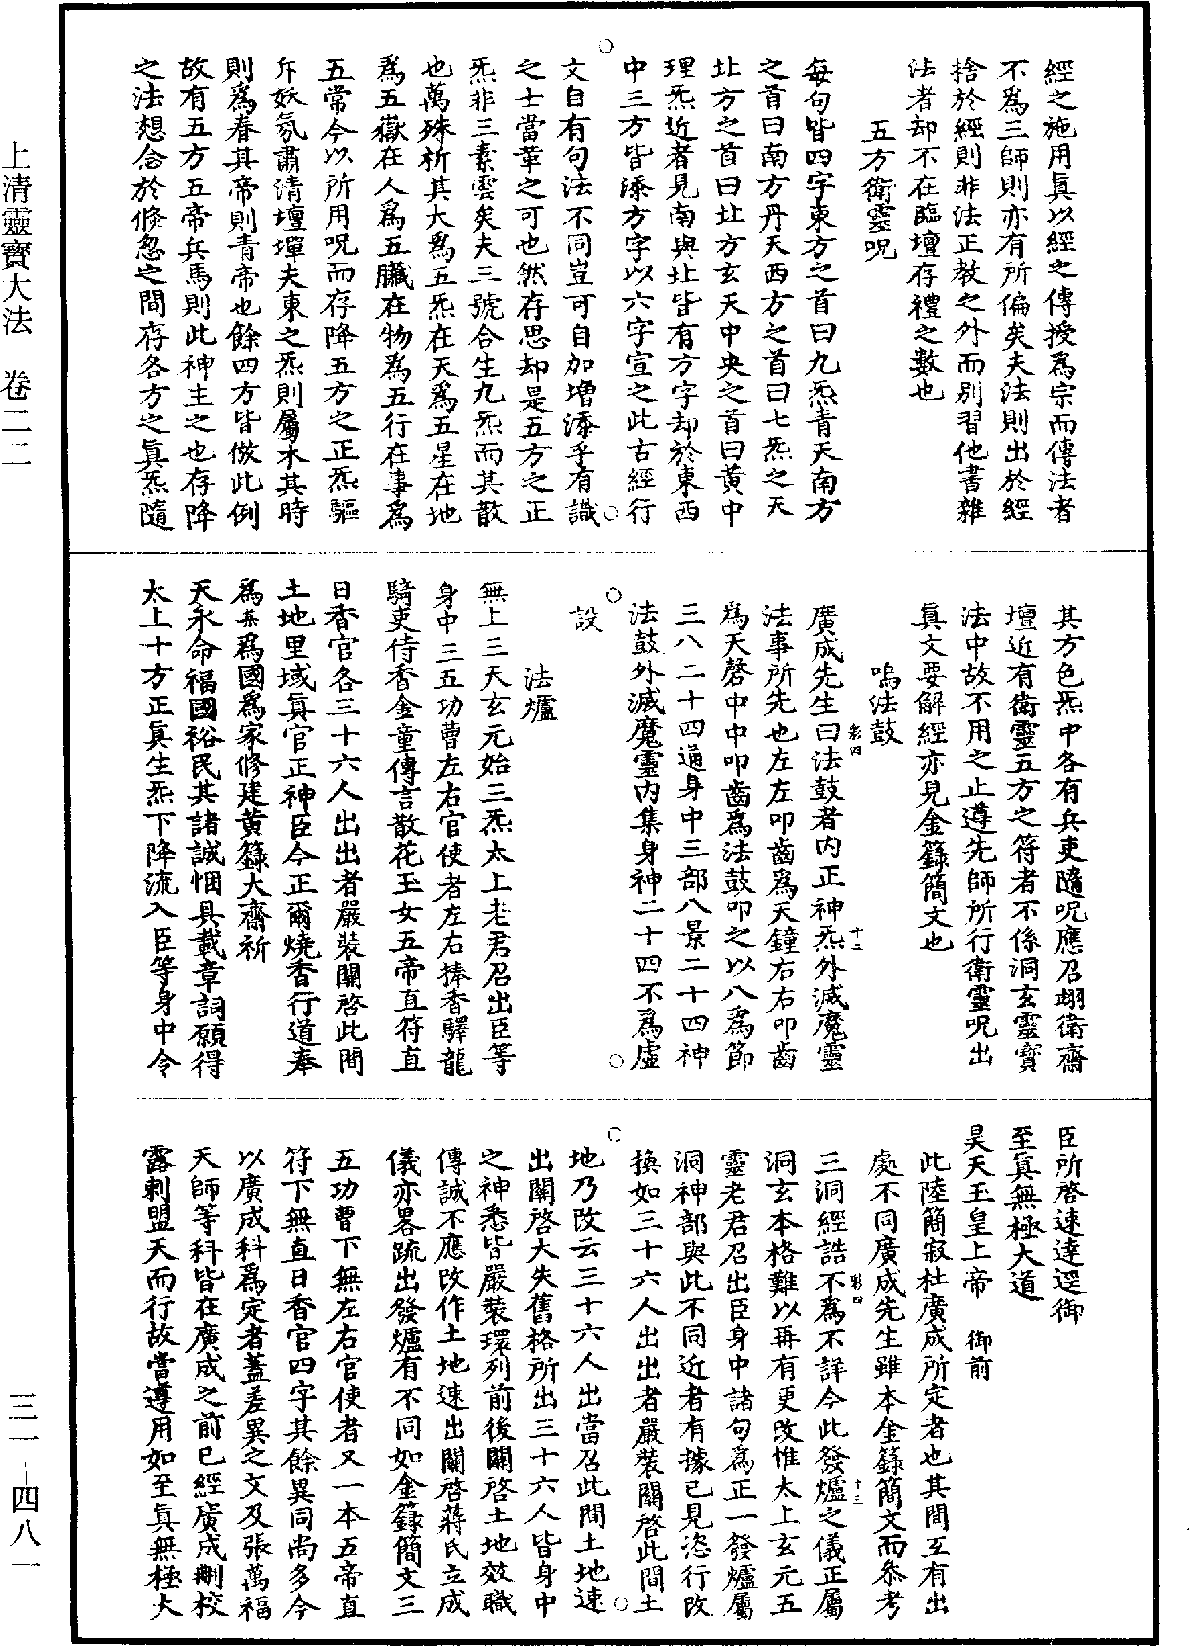 上清靈寶大法　卷二二
三一-四八一
經之施用眞以經之傳授爲宗而傳法者
不爲三師則亦有所偏矣夫法則出於經
捨於經則非法正教之外而別習他書雜
法者却不在臨壇存禮之數也
五方衛靈呪
每句皆四字東方之首曰九炁青天南方
之首曰南方丹天西方之首曰七炁之天
北方之首曰北方玄天中央之首曰黃中
理炁近者見南與北皆有方字却於東西
中三方皆添方字以六字宣之此古經行
文自有句法不同豈可自加增添乎有識
之士當革之可也然存思却是五方之正
炁非三素雲矣夫三號合生九炁而其散
也萬殊析其大爲五炁在天爲五星在地
爲五嶽在人爲五臟在物爲五行在事爲
五常今以所用呪而存降五方之正炁驅
斥妖氛肅清壇墠夫東之炁則屬木其時
則爲春其帝則青帝也餘四方皆倣此例
故有五方五帝兵馬則此神主之也存降
之法想念於倏忽之間存各方之眞炁隨
其方色炁中各有兵吏隨呪應召翊衛齋
壇近有衛靈五方之符者不係洞玄靈寶
法中故不用之止遵先師所行衛靈呪出
眞文要解經亦見金籙簡文也
鳴法鼓
廣成先生曰法鼓者内正神炁外滅魔靈
法事所先也左左叩齒爲天鐘右右叩齒
爲天磬中中叩齒爲法鼓叩之以八爲節
三八二十四通身中三部八景二十四神
法鼓外滅魔靈内集身神二十四不爲虛
設
法爐
無上三天玄元始三炁太上老君召出臣等
身中三五功曹左右官使者左右捧香驛龍
騎吏侍香金童傳言散花玉女五帝直符直
日香官各三十六人出出者嚴裝關啓此間
土地里域眞官正神臣今正爾燒香行道奉
爲某爲國爲家修建黃籙大齋祈
天永命福國裕民其諸誠悃具載章詞願得
太上十方正眞生炁下降流入臣等身中令
臣所啓速達逕御
至眞無極大道
昊天玉皇上帝　御前
此陸簡寂杜廣成所定者也其間互有出
處不同廣成先生雖本金籙簡文而叅考
三洞經誥不爲不詳今此發爐之儀正屬
洞玄本格難以再有更改惟太上玄元五
靈老君召出臣身中諸句爲正一發爐屬
洞神部與此不同近者有據已見恣行改
換如三十六人出出者嚴裝關啓此間土
地乃改云三十六人出當召此間土地速
出關啓大失舊格所出三十六人皆身中
之神悉皆嚴裝環列前後關啓土地效職
傳誠不應改作土地速出關啓蔣氏立成
儀亦畧疏出發爐有不同如金籙簡文三
五功曹下無左右官使者又一本五帝直
符下無直日香官四字其餘異同尚多今
以廣成科爲定者蓋差異之文及張萬福
天師等科皆在廣成之前已經廣成刪校
露刺盟天而行故當遵用如至眞無極大